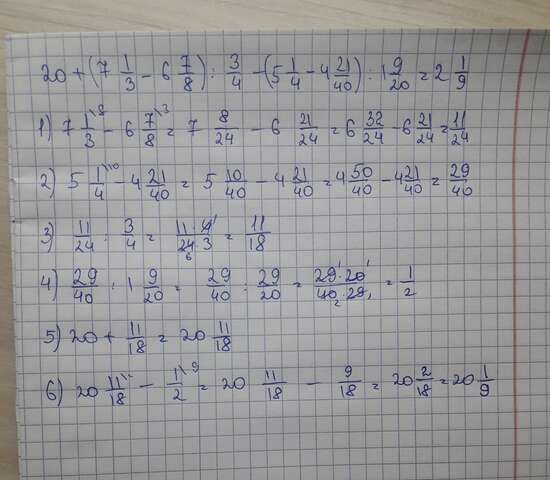 20 + (7 1/3 - 6 7/8) : 3/4 - (5 1/4 - 4 21/40) : 1 9/20 = 2 1/9
1) 7 1\8/3 - 6 7\3/8 = 7 8/24 - 6 21/24 = 6 32/24 - 6 21/24 = 11/24
2) 5 1\10/4 - 4 21/40 = 5 10/40 - 4 21/40 = 4 50/40 - 4 21/40 = 29/40
3) 11/24 : 3/4 = 11·4¹/24₆·3 = 11/18
4) 29/40 : 1 9/20 = 29/40 : 29/20 = 29¹·20¹/40₂·29₁ = 1/2
5) 20 + 11/18 = 20 11/18
6) 20 11\1/18 - 1\9/2 = 20 11/18 - 9/18 = 20 2/18 = 20 1/9